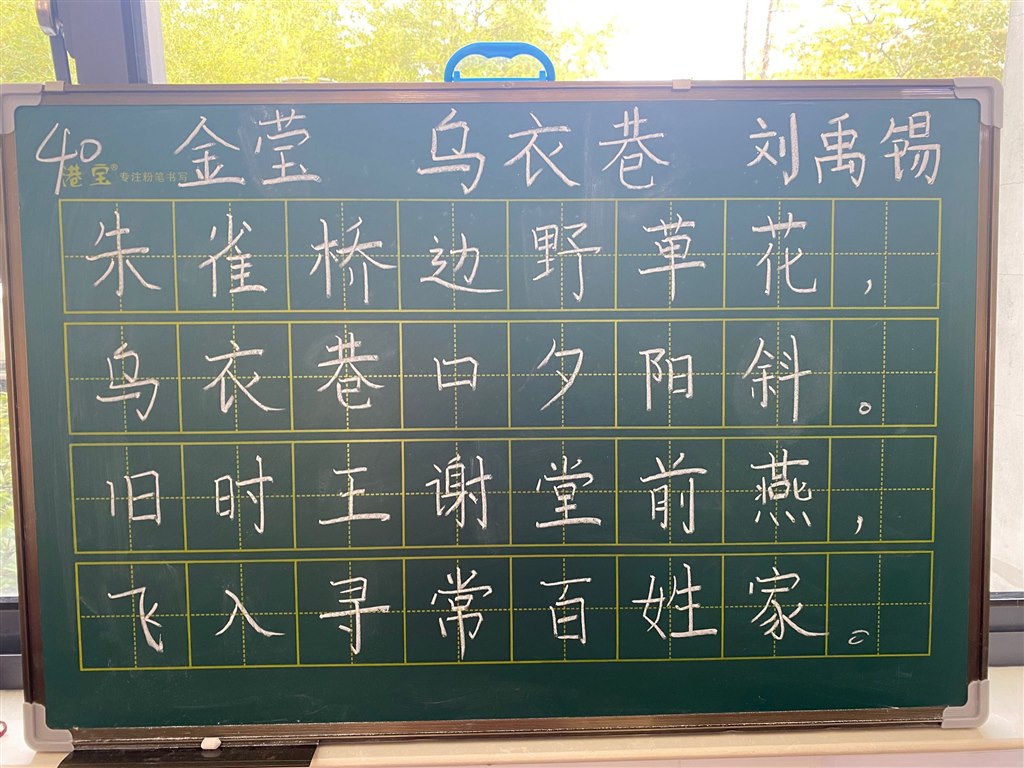 40 金莹 乌衣巷 刘禹锡
港宝® 专注粉笔书写
朱雀桥边野草花，
乌衣巷口夕阳斜。
旧时王谢堂前燕，
飞入寻常百姓家。